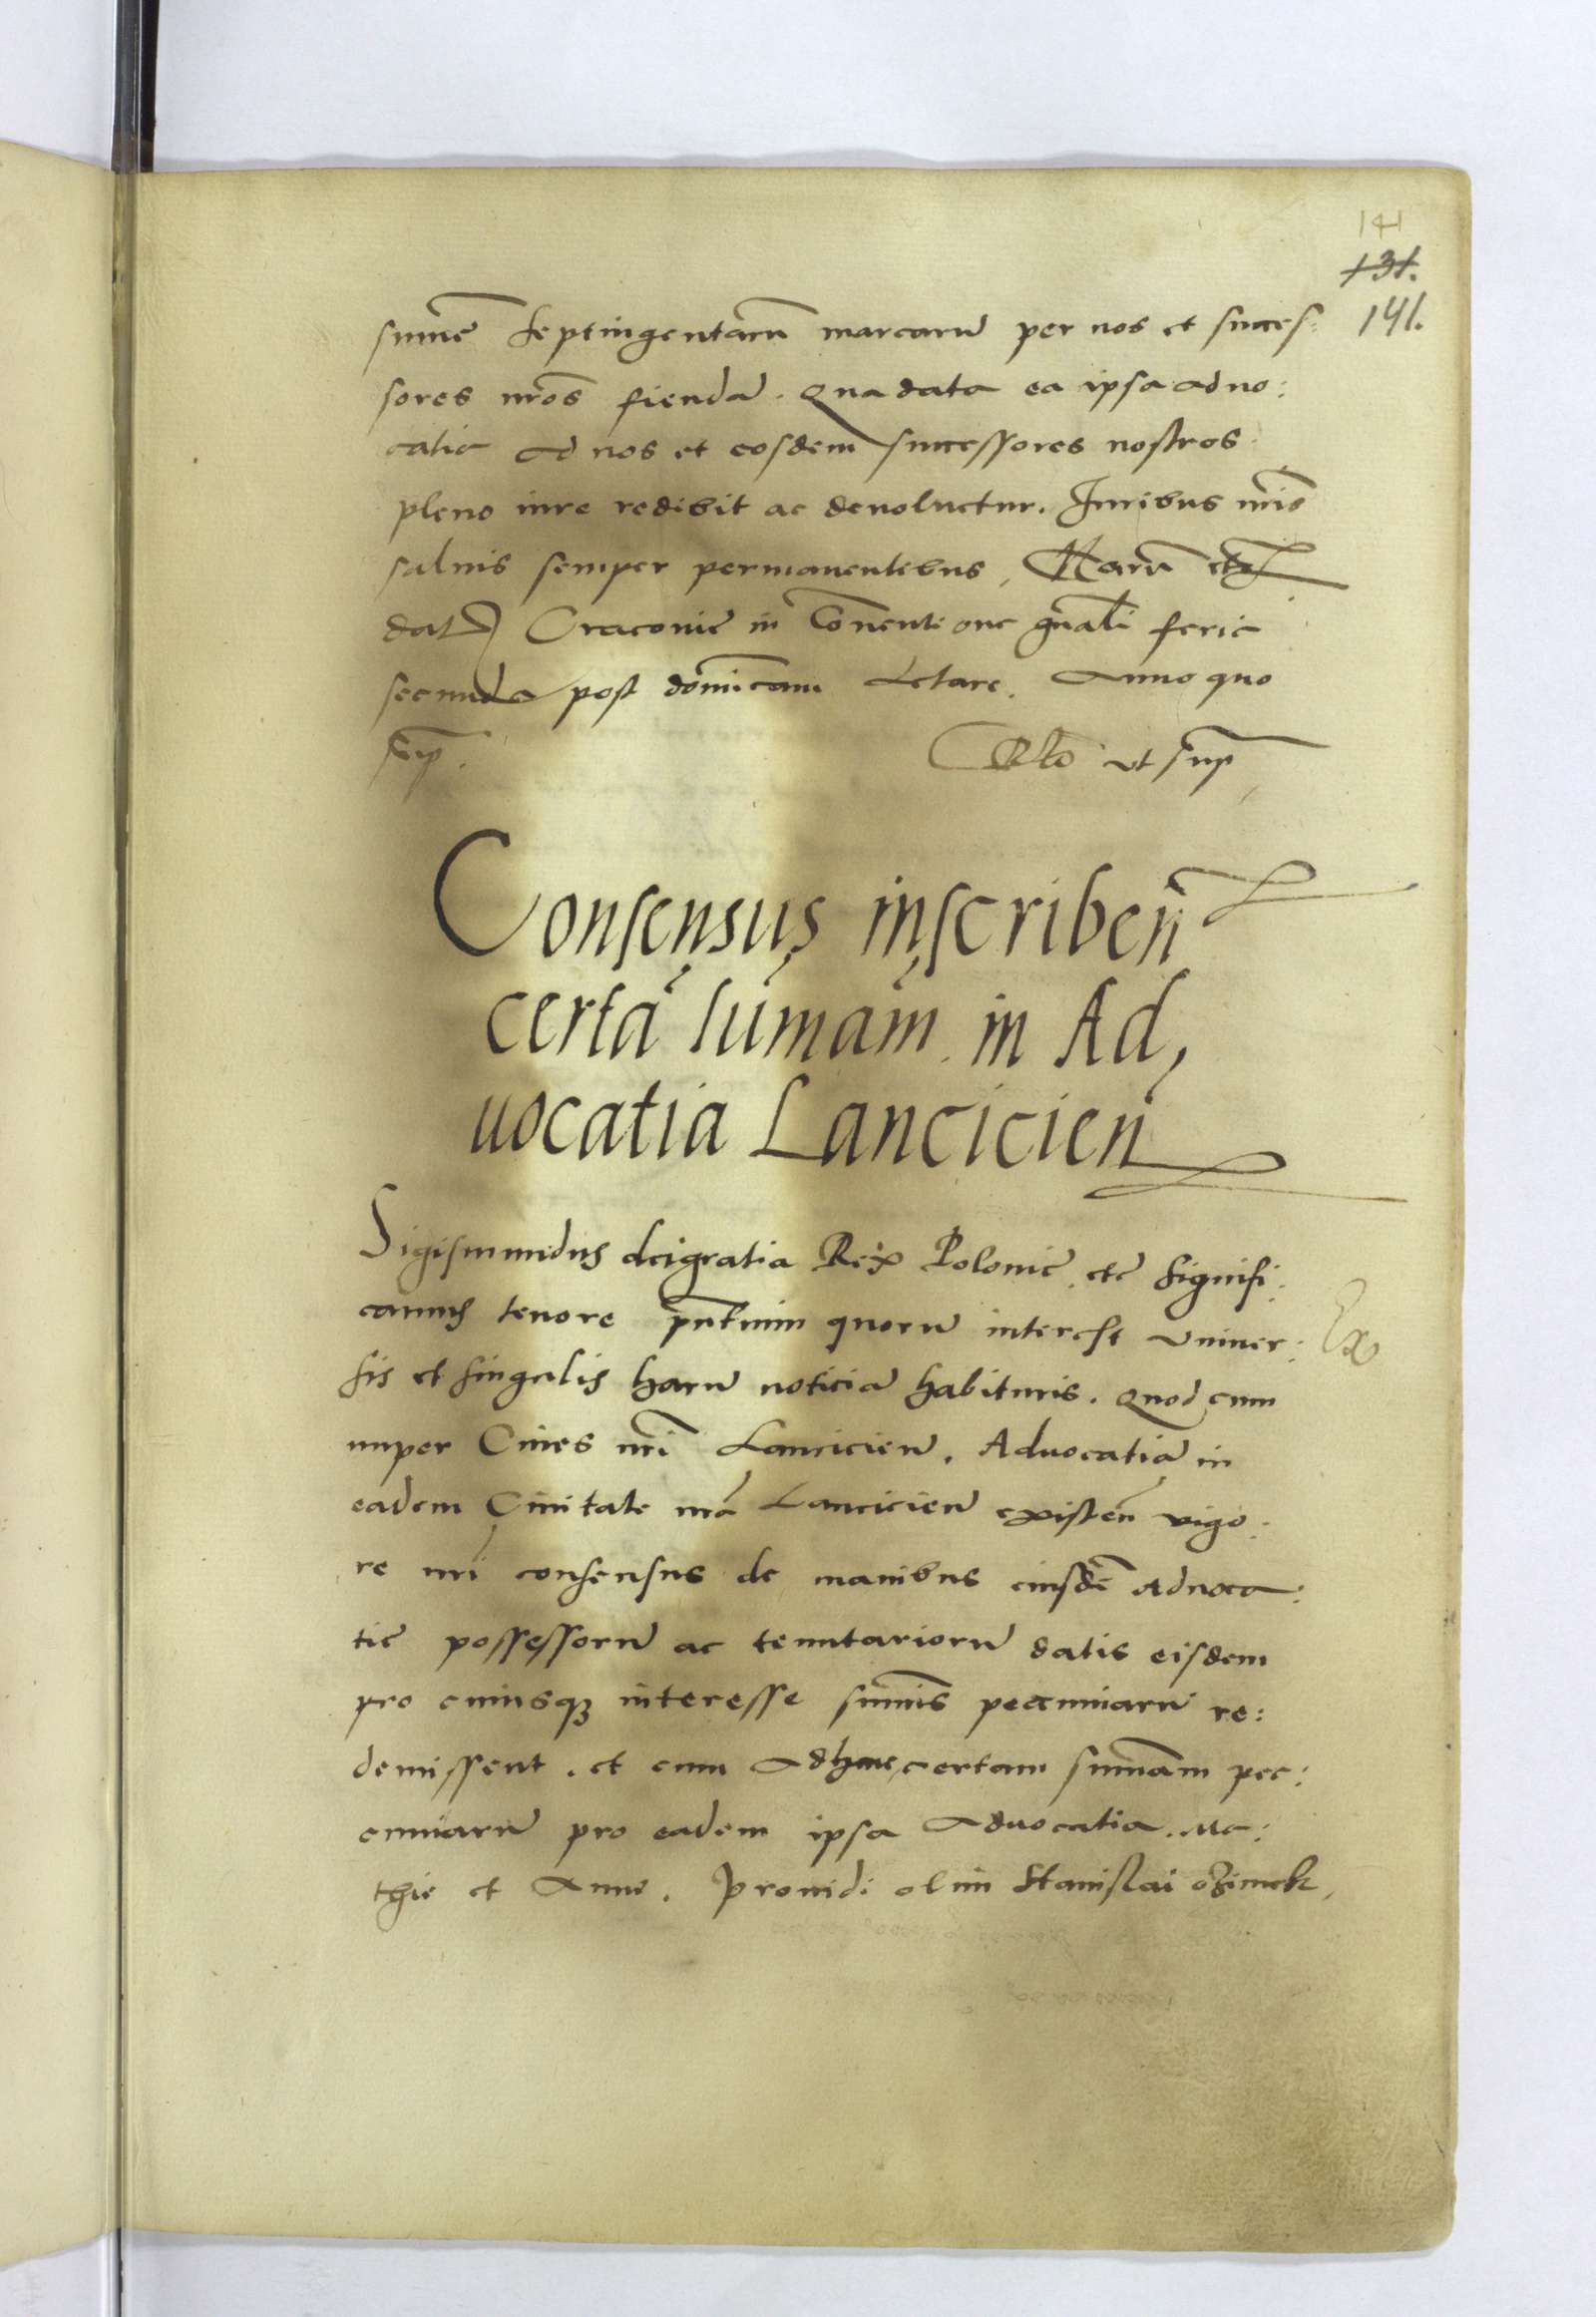 141
131.
141.
sum̄e septingentarū marcarū per nos et succes:
sores nr̄os fiendā. Qua data ea ipsa aduo:
catia ad nos et eosdem successores nostros
pleno iure redibit ac deuoluetur. Iuribus nr̄is
saluis semper permanentibus, Harū
dat Cracouie in Conuentione gn̄ali feria
secunda post dominicam Letare. Anno quo
sup. Rlo ut sup
Consensus inscriben̄
certā sūmam in Ad,
uocatia Lancicien
Sigismundus dei gratia Rex Polonie etc signifi:
camus tenore pn̄tium quorū interest vniuer:
sis et singulis harū noticiā habituris. Quod cum
nuper Ciues nr̄i Lancicien̄. Aduocatiā in
eadem Ciuitate nr̄a Lancicien̄ existen̄ vigo:
re nr̄i consensus de manibus eiusdē Aduoca:
tie possessorū ac tenutariorū datis eisdem
pro cuiusq; interesse sum̄is pecuniarū re:
demissent. et cum adhuc certam sum̄am pec:
cuniarū pro eadem ipsa aduocatia. Ma:
thie et Anne. Prouidi olim Stanislai ozimek,